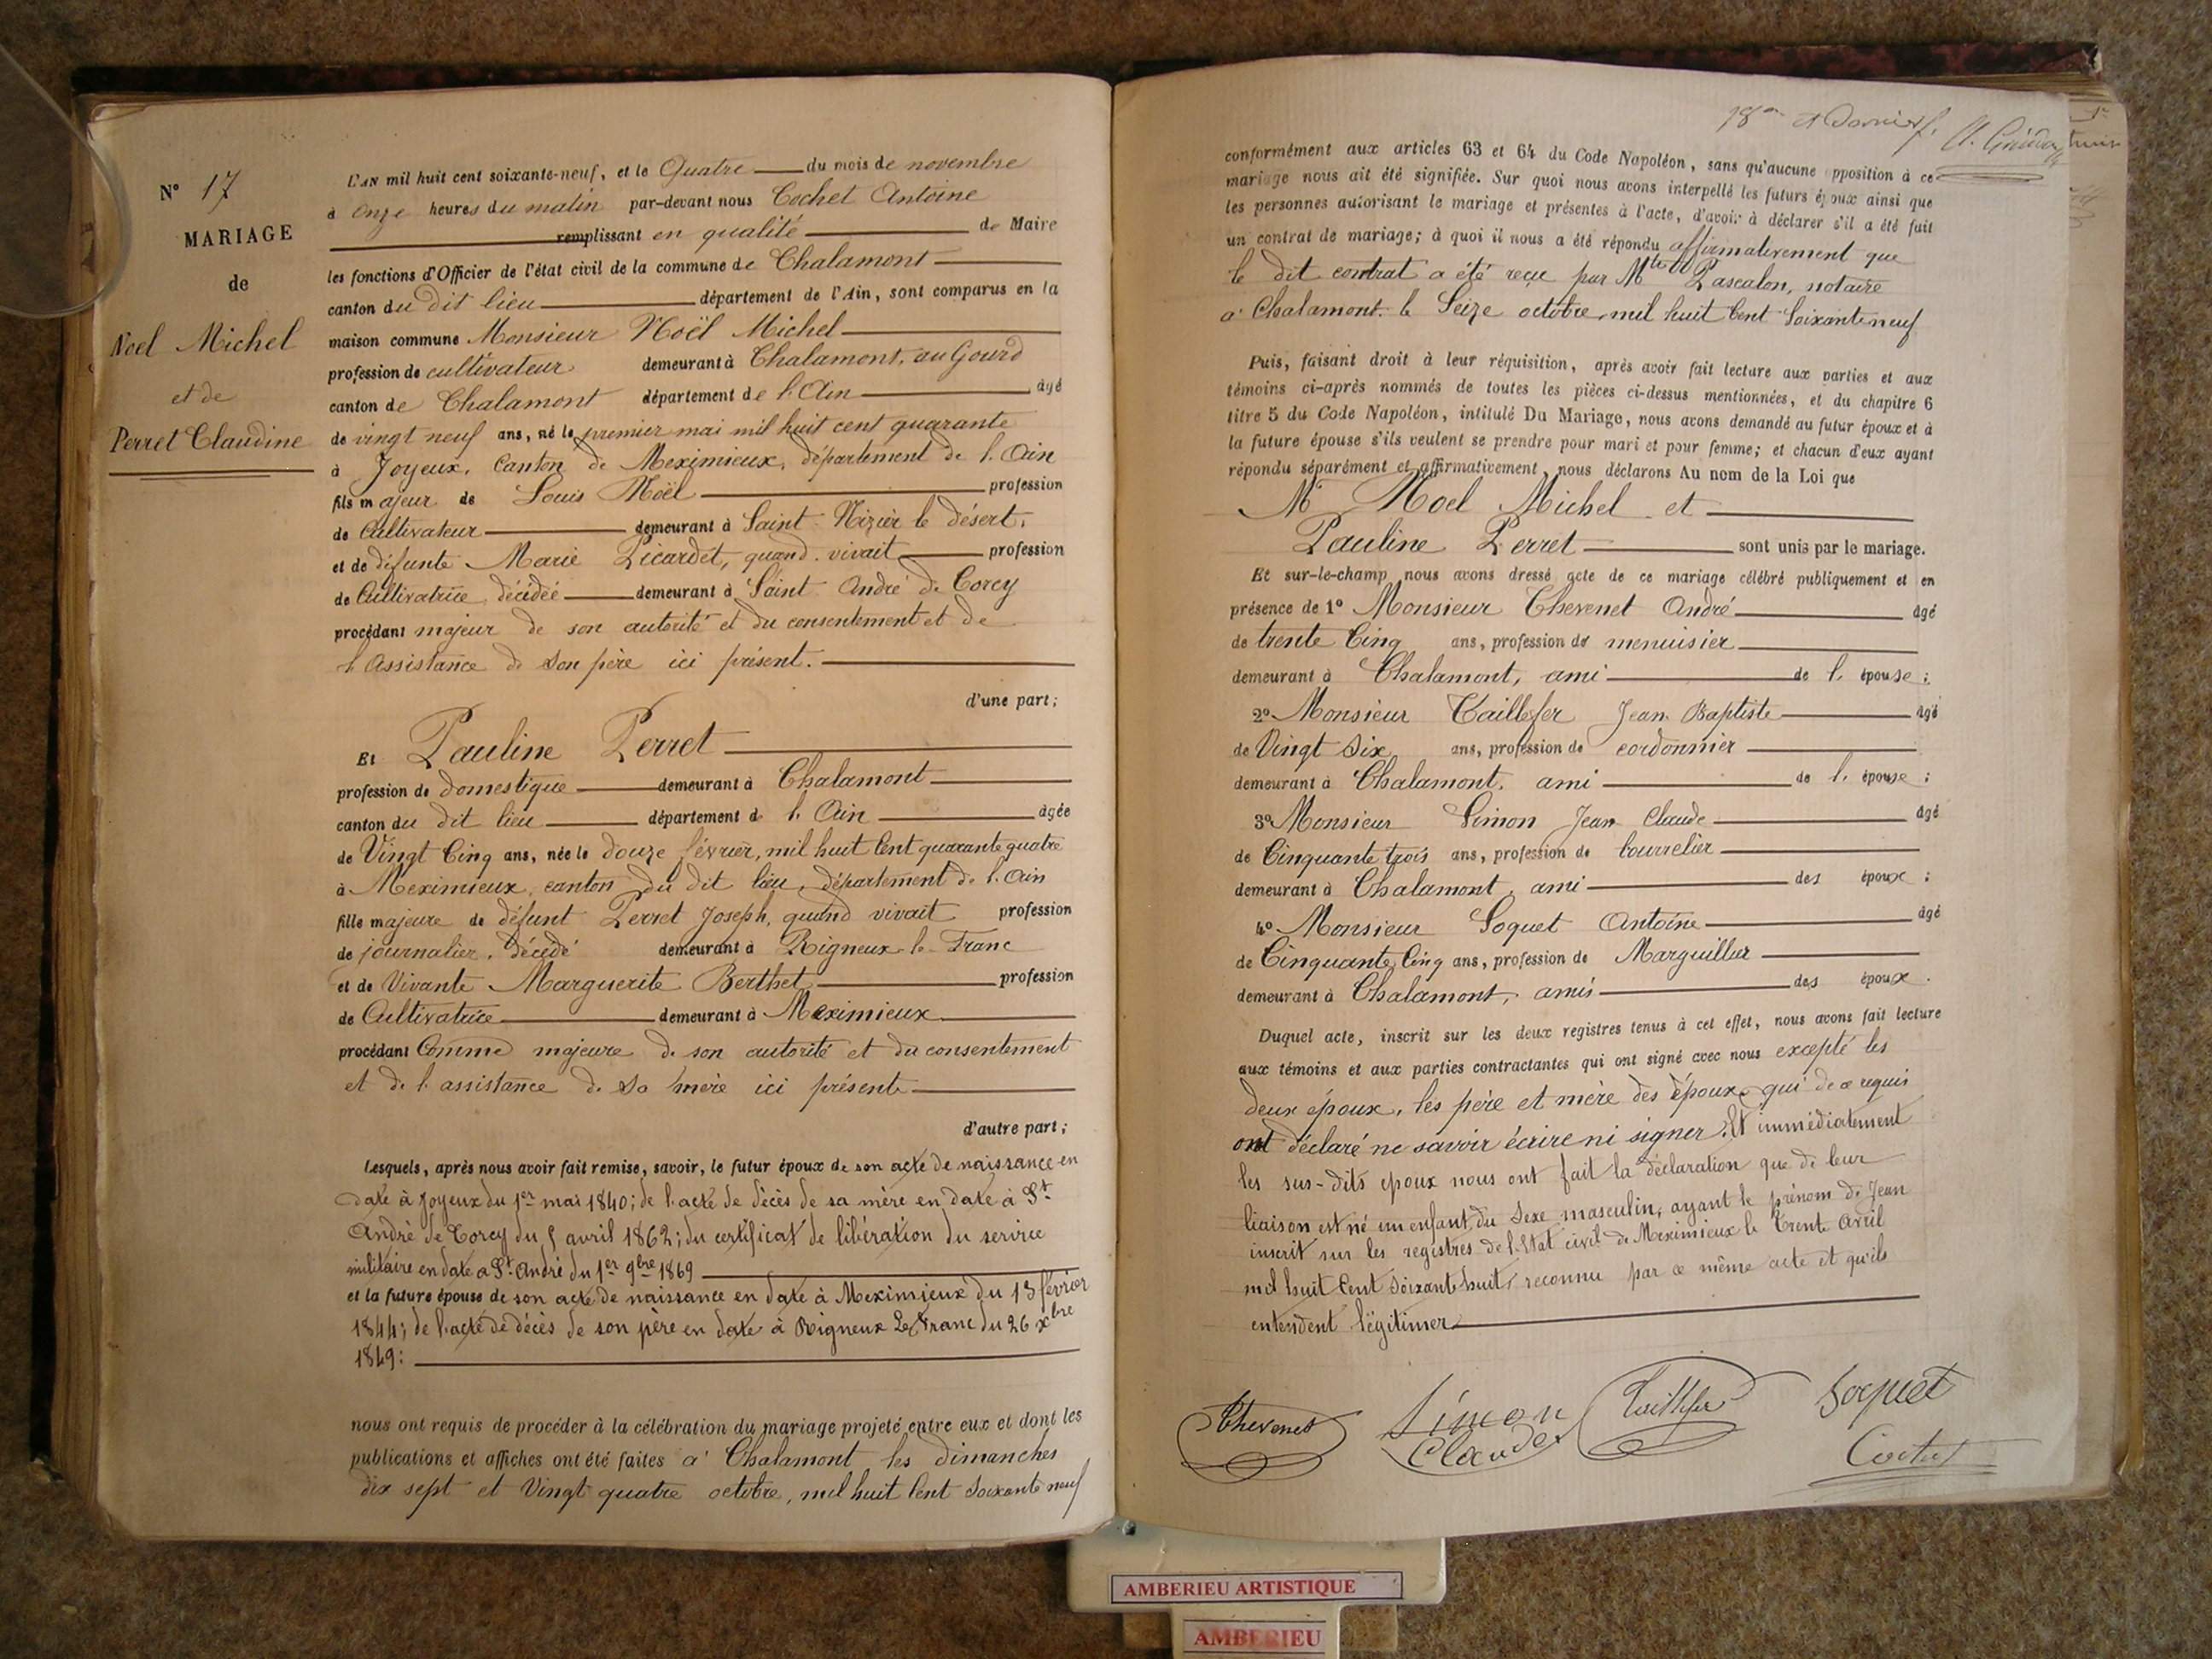 N° 17
MARIAGE
de
Noel Michel
et de
Perret Claudine
L'AN mil huit cent soixante-neuf, et le Quatre du mois de novembre
à Onze heures du matin par-devant nous Cochet Antoine
remplissant en qualité de Maire
les fonctions d'Officier de l'état civil de la commune de Chalamont
canton du dit lieu département de l'Ain, sont comparus en la
maison commune Monsieur Noël Michel
profession de cultivateur demeurant à Chalamont, au Gourd
canton de Chalamont département de l'Ain âgé
de vingt neuf ans, né le premier mai mil huit cent quarante
à Joyeux, Canton de Meximieux, département de l'Ain
fils majeur de Louis Noël profession
de Cultivateur demeurant à Saint Nizier le désert,
et de défunte Marie Picardet, quand vivait profession
de Cultivatrice décédée demeurant à Saint André de Corcy
procédant majeur de son autorité et du consentement et de
l'Assistance de son père ici présent.
d'une part;
Et Pauline Perret
profession de domestique demeurant à Chalamont
canton du dit lieu département de l'Ain âgée
de Vingt Cinq ans, née le douze février, mil huit Cent quarante quatre
à Meximieux, canton du dit lieu, département de l'Ain
fille majeure de défunt Perret Joseph, quand vivait profession
de journalier, décédé demeurant à Rigneux-le-Franc
et de Vivante Marguerite Berthet profession
de Cultivatrice demeurant à Meximieux
procédant Comme majeure de son autorité et du consentement
et de l'assistance de sa mère ici présente
d'autre part;
Lesquels, après nous avoir fait remise, savoir, le futur époux de son acte de naissance en
date à Joyeux du 1er mai 1840; de l'acte de décès de sa mère en date à St
André de Corcy du 5 avril 1862; du certificat de libération du service
militaire en date à St André du 1er 9bre 1869
et la future épouse de son acte de naissance en date à Meximieux du 13 février
1844; de l'acte de décès de son père en date à Rigneux Le Franc du 26 xbre
1849:
nous ont requis de procéder à la célébration du mariage projeté entre eux et dont les
publications et affiches ont été faites à Chalamont les dimanches
dix sept et Vingt quatre octobre, mil huit Cent Soixante neuf
18me et Dernier f.
conformément aux articles 63 et 64 du Code Napoléon, sans qu'aucune opposition à ce
mariage nous ait été signifiée. Sur quoi nous avons interpellé les futurs époux ainsi que
les personnes autorisant le mariage et présentes à l'acte, d'avoir à déclarer s'il a été fait
un contrat de mariage; à quoi il nous a été répondu affirmativement que
le dit contrat a été reçu par Mtre Pascalon, notaire
à Chalamont le Seize octobre mil huit Cent Soixante neuf
Puis, faisant droit à leur réquisition, après avoir fait lecture aux parties et aux
témoins ci-après nommés de toutes les pièces ci-dessus mentionnées, et du chapitre 6
titre 5 du Code Napoléon, intitulé Du Mariage, nous avons demandé au futur époux et à
la future épouse s'ils veulent se prendre pour mari et pour femme; et chacun d'eux ayant
répondu séparément et affirmativement, nous déclarons Au nom de la Loi que
Mr Noel Michel et
Pauline Perret sont unis par le mariage.
Et sur-le-champ nous avons dressé acte de ce mariage célébré publiquement et en
présence de 1° Monsieur Thevenet André âgé
de trente Cinq ans, profession de menuisier
demeurant à Chalamont, ami de l'épouse;
2° Monsieur Taillefer Jean Baptiste âgé
de Vingt Six ans, profession de cordonnier
demeurant à Chalamont, ami de l'épouse;
3° Monsieur Simon Jean Claude âgé
de Cinquante trois ans, profession de bourrelier
demeurant à Chalamont, ami des époux;
4° Monsieur Soquet Antoine âgé
de Cinquante Cinq ans, profession de Marguillier
demeurant à Chalamont, amis des époux.
Duquel acte, inscrit sur les deux registres tenus à cet effet, nous avons fait lecture
aux témoins et aux parties contractantes qui ont signé avec nous excepté les
deux époux, les père et mère des époux qui de ce requis
ont déclaré ne savoir écrire ni signer. Et immédiatement
les sus-dits époux nous ont fait la déclaration que de leur
liaison est né un enfant du Sexe masculin, ayant le prénom de Jean
inscrit sur les registres de l'Etat civil de Meximieux le Trente Avril
mil huit Cent soixante huit, reconnu par ce même acte et qu'ils
entendent légitimer
Thevenet Simon Claude Taillefer Soquet
Cochet
AMBERIEU ARTISTIQUE
AMBERIEU